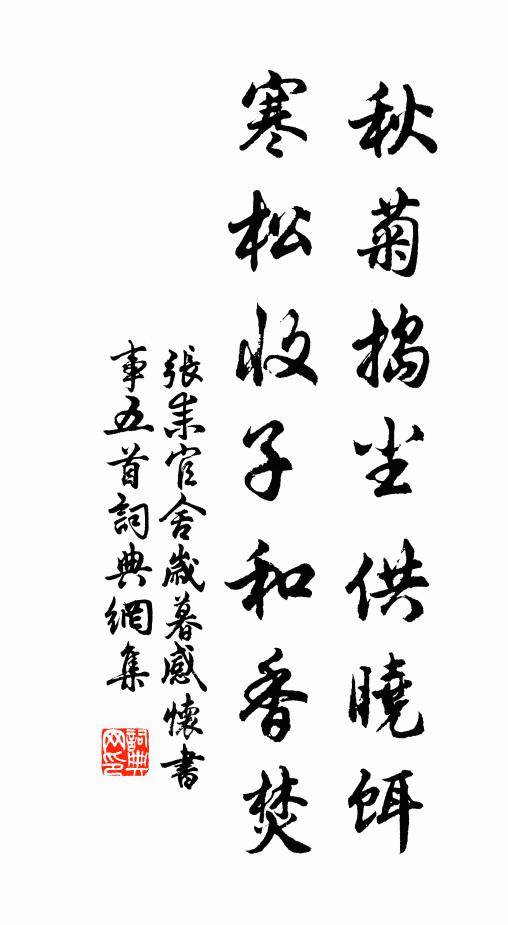 秋菊搗尘供曉餌
寒松收子和香焚
張耒官舍歲暮感懷書
事五首詞典網集
詞典
网印